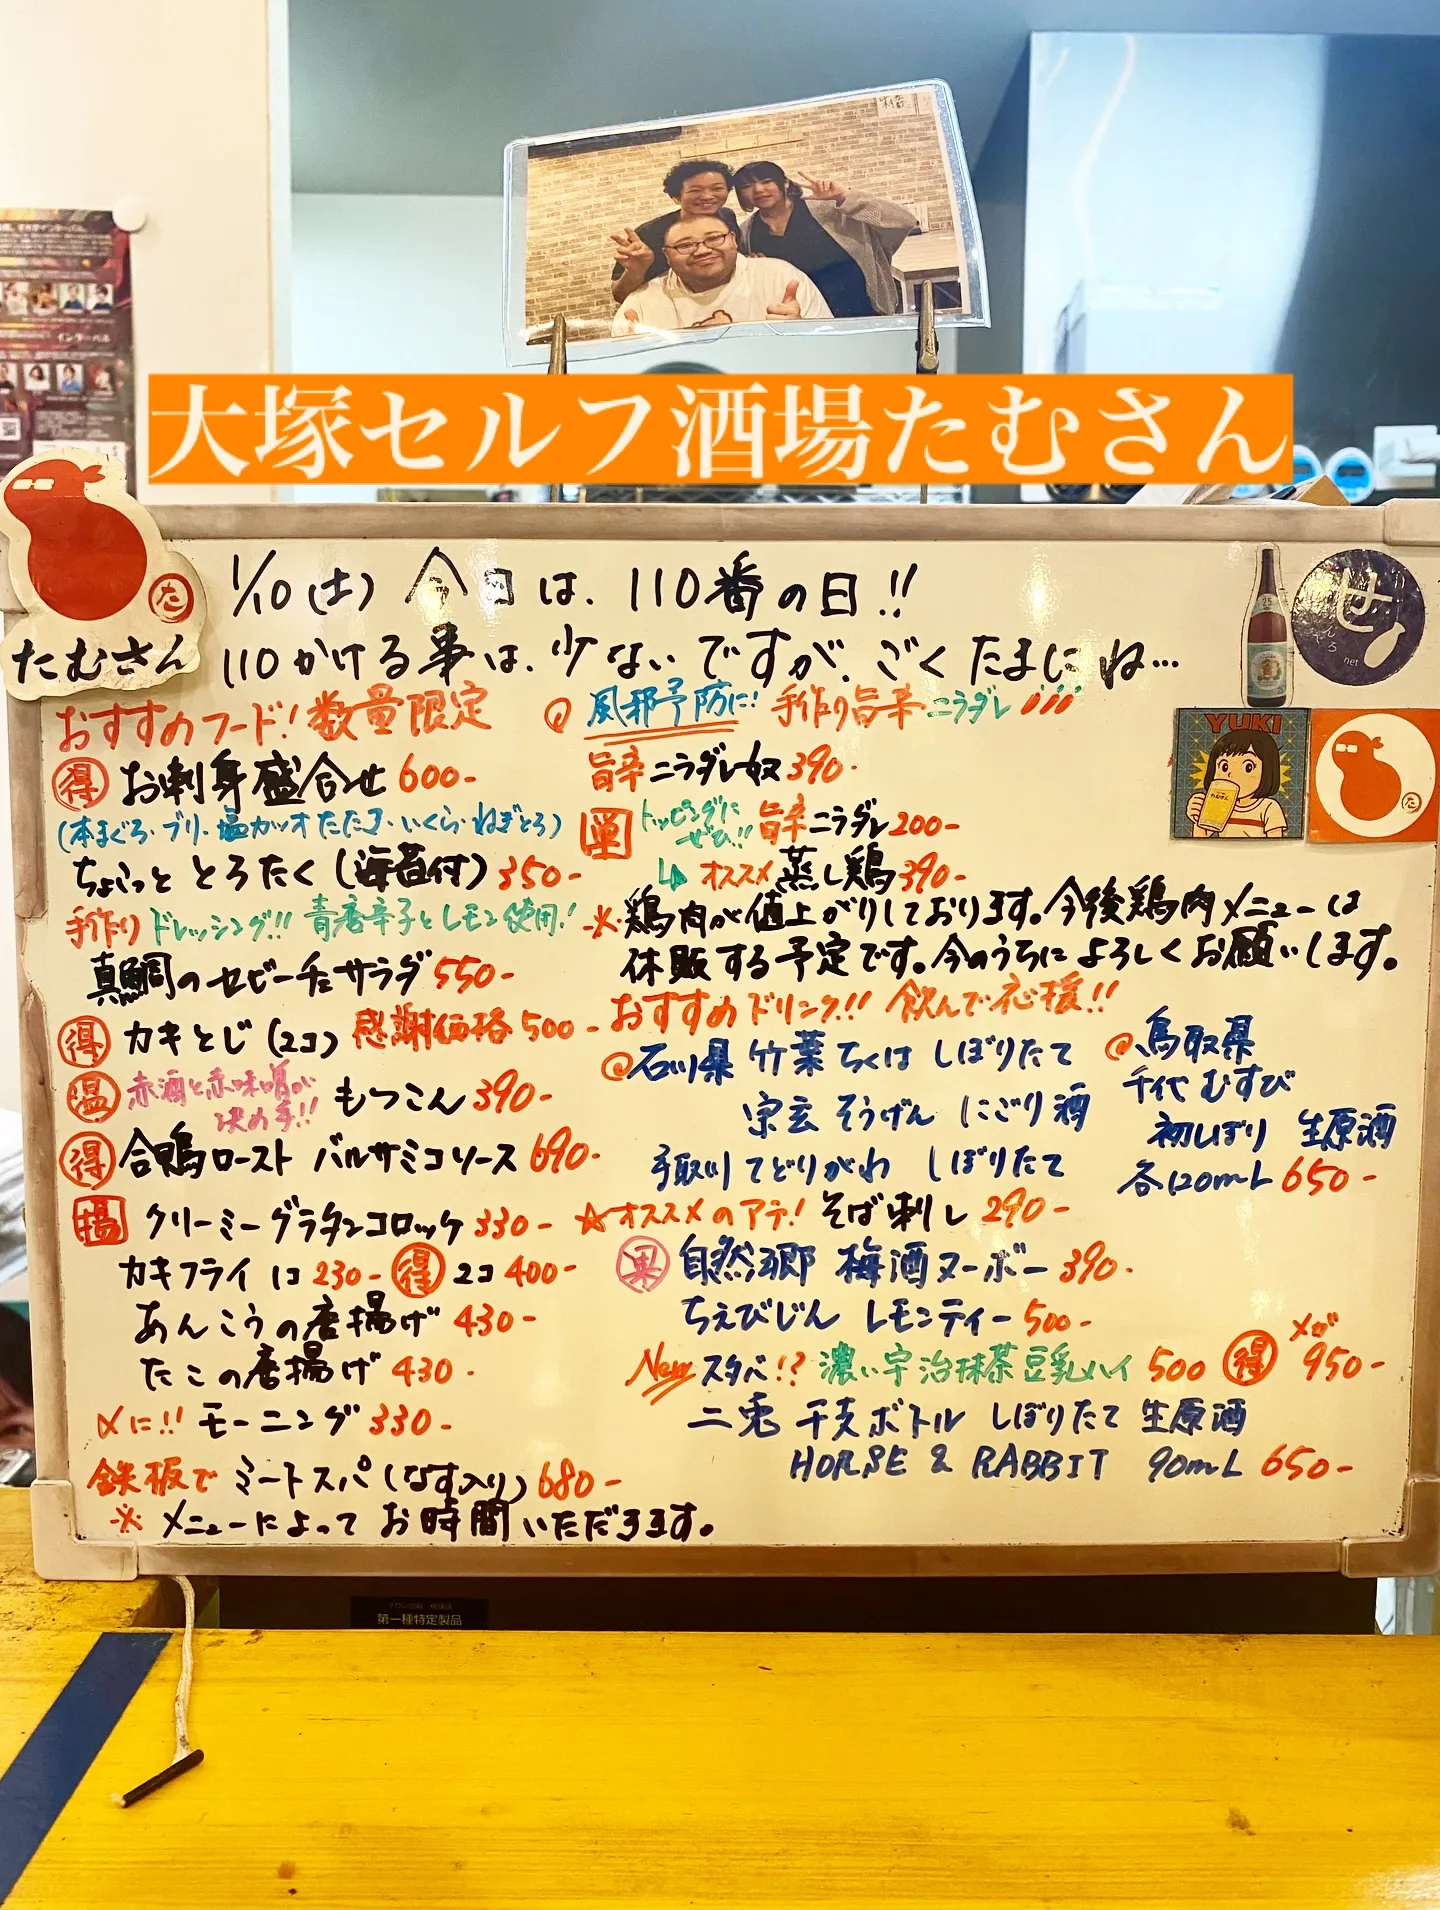 大塚セルフ酒場たむさん
1/10(土) 今日は、110番の日!!
110かける事は、少ないですが、ごくたまにね…
たむさん
た
せ
net
YUKI
おすすめフード!数量限定
得 お刺身盛合せ 600-
(本まぐろ・ブリ・塩カツオたたき・いくら・ねぎとろ)
ちょこっと とろたく(海苔付) 350-
手作り ドレッシング!! 青唐辛子とレモン使用!
真鯛のセビーチェサラダ 550-
得 カキとじ (2コ) 感謝価格 500-
温 赤酒と赤味噌が決め手!! もつこん 390-
得 合鴨ロースト バルサミコソース 690-
揚 クリーミーグラタンコロッケ 330-
カキフライ 1コ 230- 得 2コ 400-
あんこうの唐揚げ 430-
たこの唐揚げ 430-
〆に!! モーニング 330-
鉄板で ミートスパ(なす入り) 680-
※ メニューによって お時間いただきます。
風邪予防に! 手作り旨辛ニラダレ
旨辛ニラダレ奴 390-
単 トッピングにぜひ!! 旨辛ニラダレ 200-
↳ オススメ 蒸し鶏 390-
※鶏肉が値上がりしております。今後鶏肉メニューは
休販する予定です。今のうちによろしくお願いします。
おすすめドリンク!! 飲んで応援!!
@石川県 竹葉 ちくは しぼりたて
宗玄 そうげん にごり酒
手取川 てどりがわ しぼりたて
@鳥取県
千代むすび
初しぼり 生原酒
各120mL 650-
☆オススメのアテ! そば刺し 290-
果 自然郷 梅酒ヌーボー 390-
ちえびじん レモンティー 500-
New スタバ!? 濃い宇治抹茶豆乳ハイ 500 得 メガ 950-
二兎 干支ボトル しぼりたて 生原酒
HORSE & RABBIT 90mL 650-
第一種特定製品